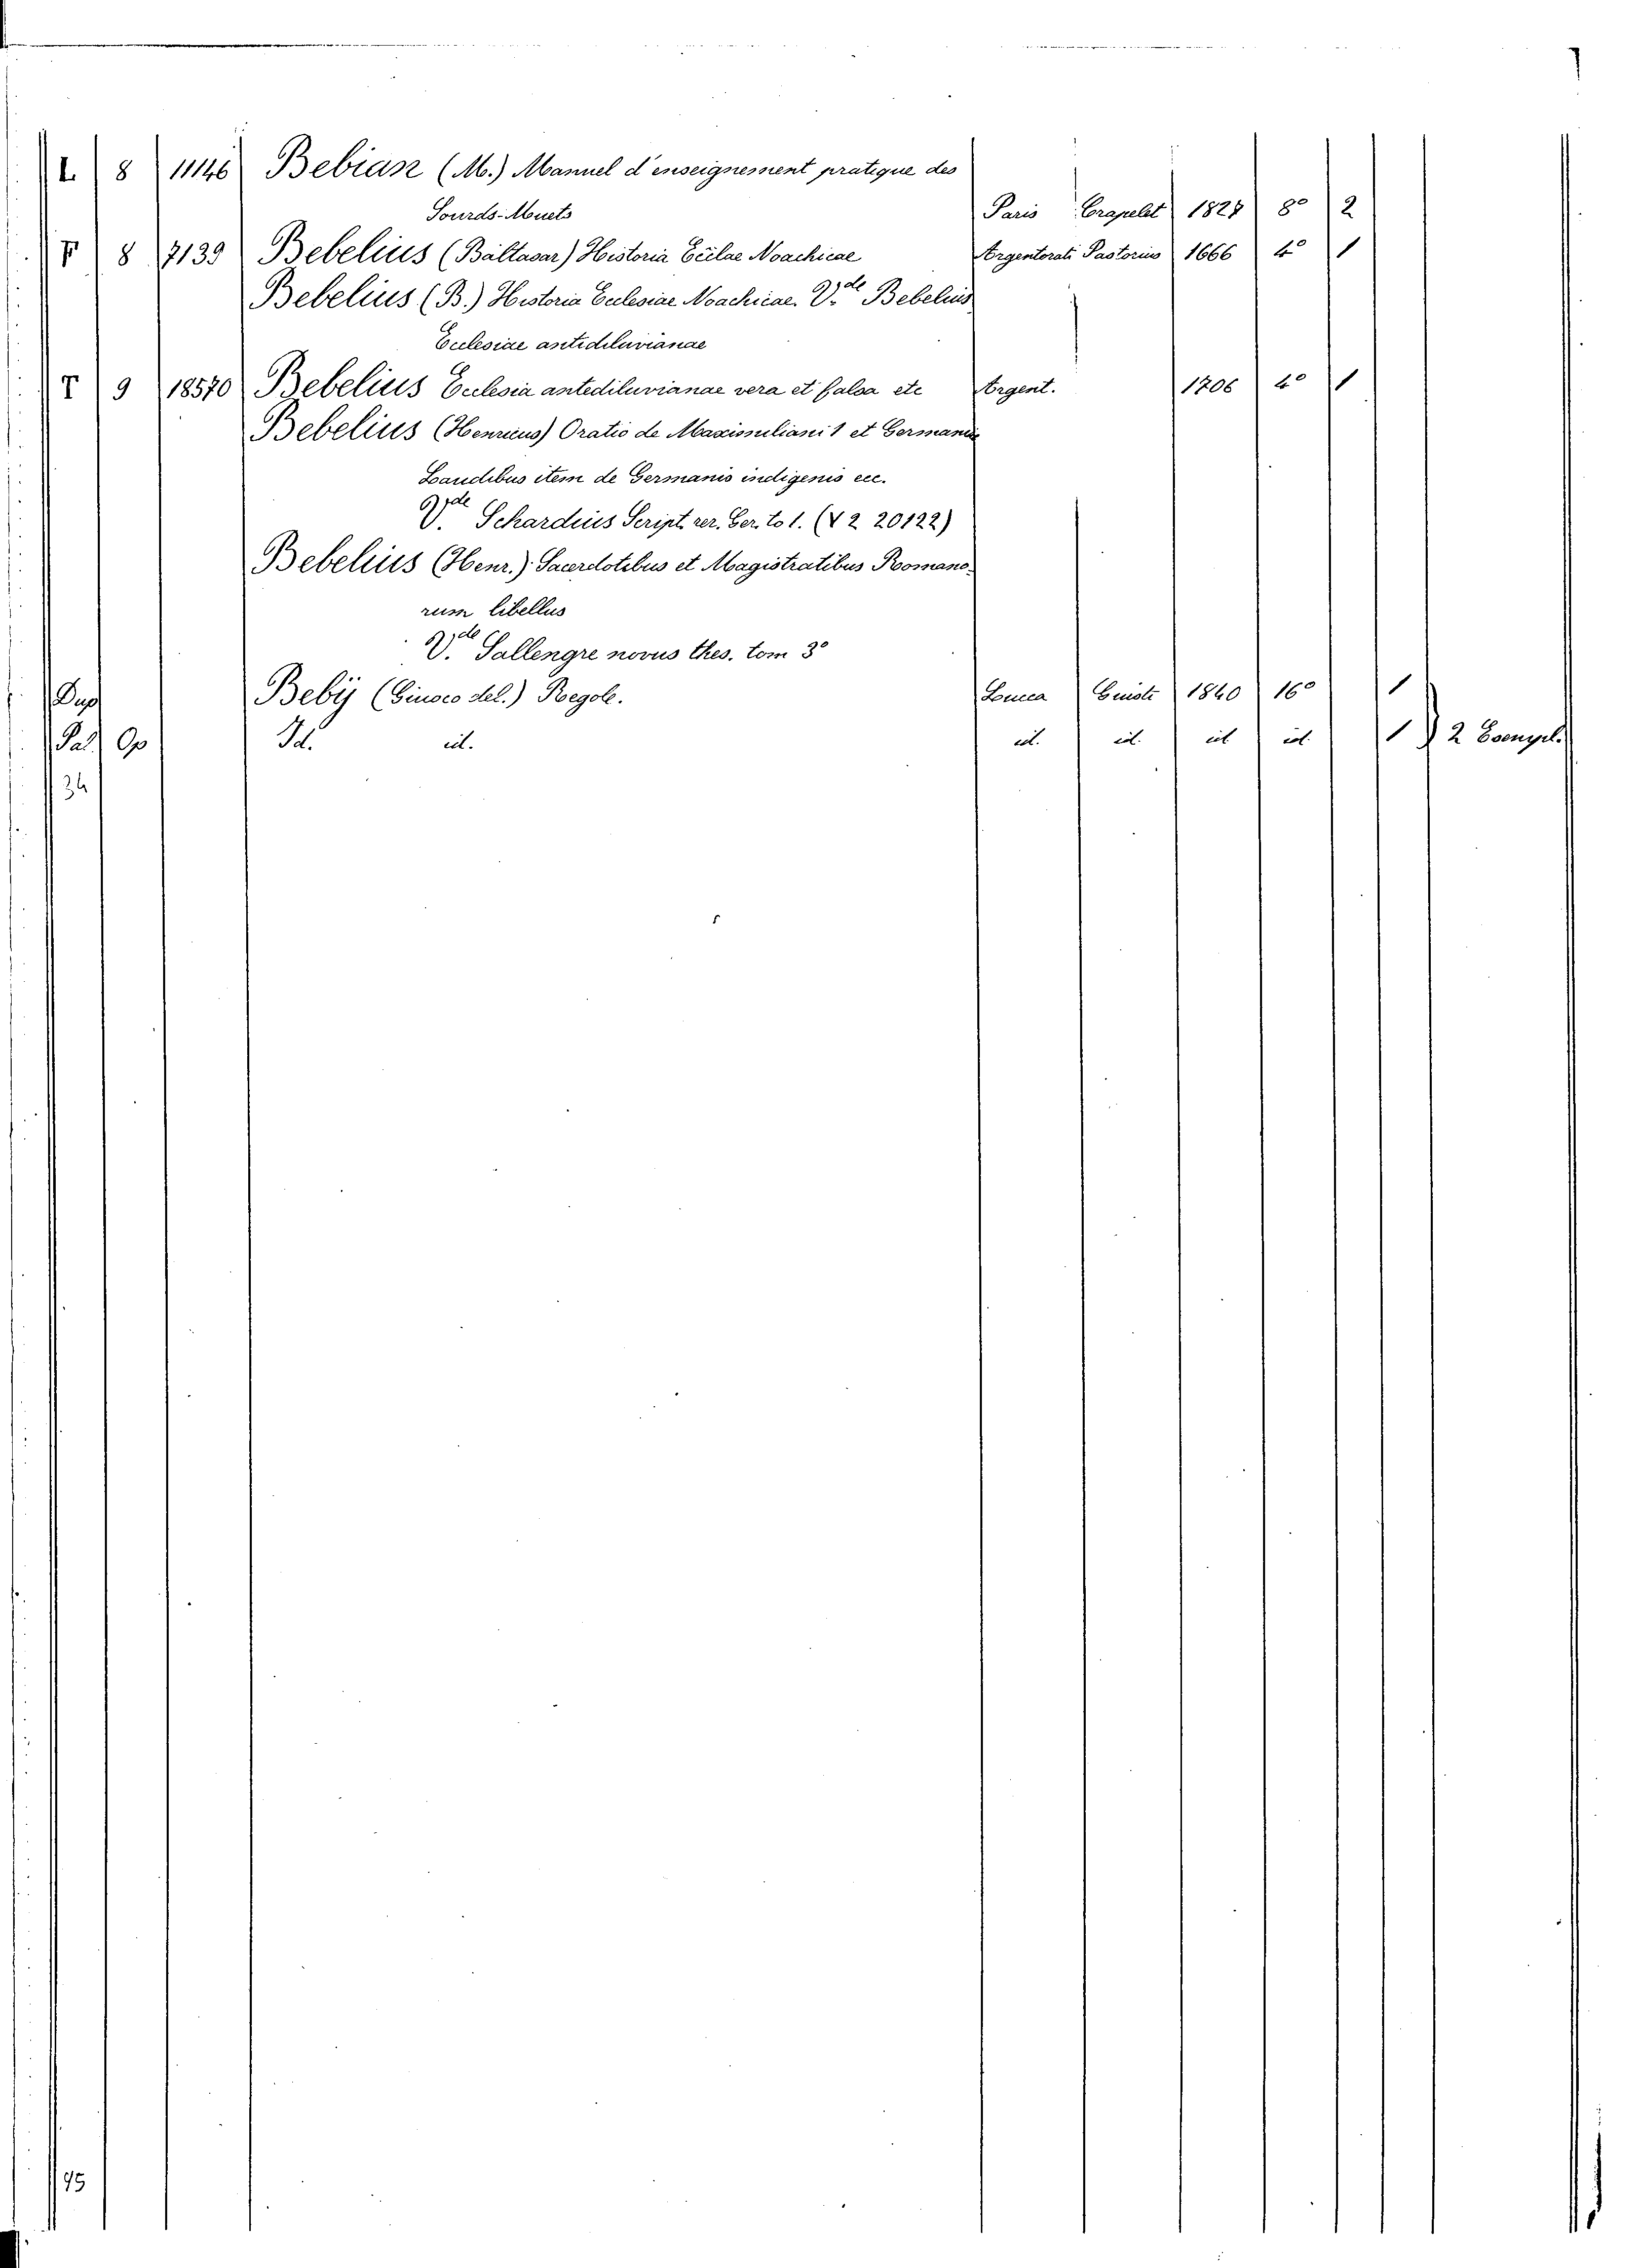 L 8 11146 Bebian (M.) Manuel d'enseignement pratique des
Sourds-Muets Paris Crapelet 1827 8° 2
F 8 7139 Bebelius (Baltasar) Historia Ecclae Noachicae Argentorati Pastorius 1666 4° 1
Bebelius (B.) Historia Eclesiae Noachicae. V.de Bebelius
Eclesiae antidiluvianae
T 9 18570 Bebelius Eclesia antediluvianae vera et falsa etc Argent. 1706 4° 1
Bebelius (Henricus) Oratio de Maximiliani 1 et Germaniae
Laudibus item de Germanis indigenis ecc.
V.de Schardius Script. rer. Ger. to 1. (V 2 20122)
Bebelius (Henr.) Sacerdotibus et Magistratibus Romano-
rum libellus
V.de Sallengre novus thes. tom 3°
Dup Bebij (Ginoco del.) Regole. Lucca Giusti 1840 16° 1
Pal. Op Id. id. id. id. id. id. 1 } 2 Esempl.
34
95